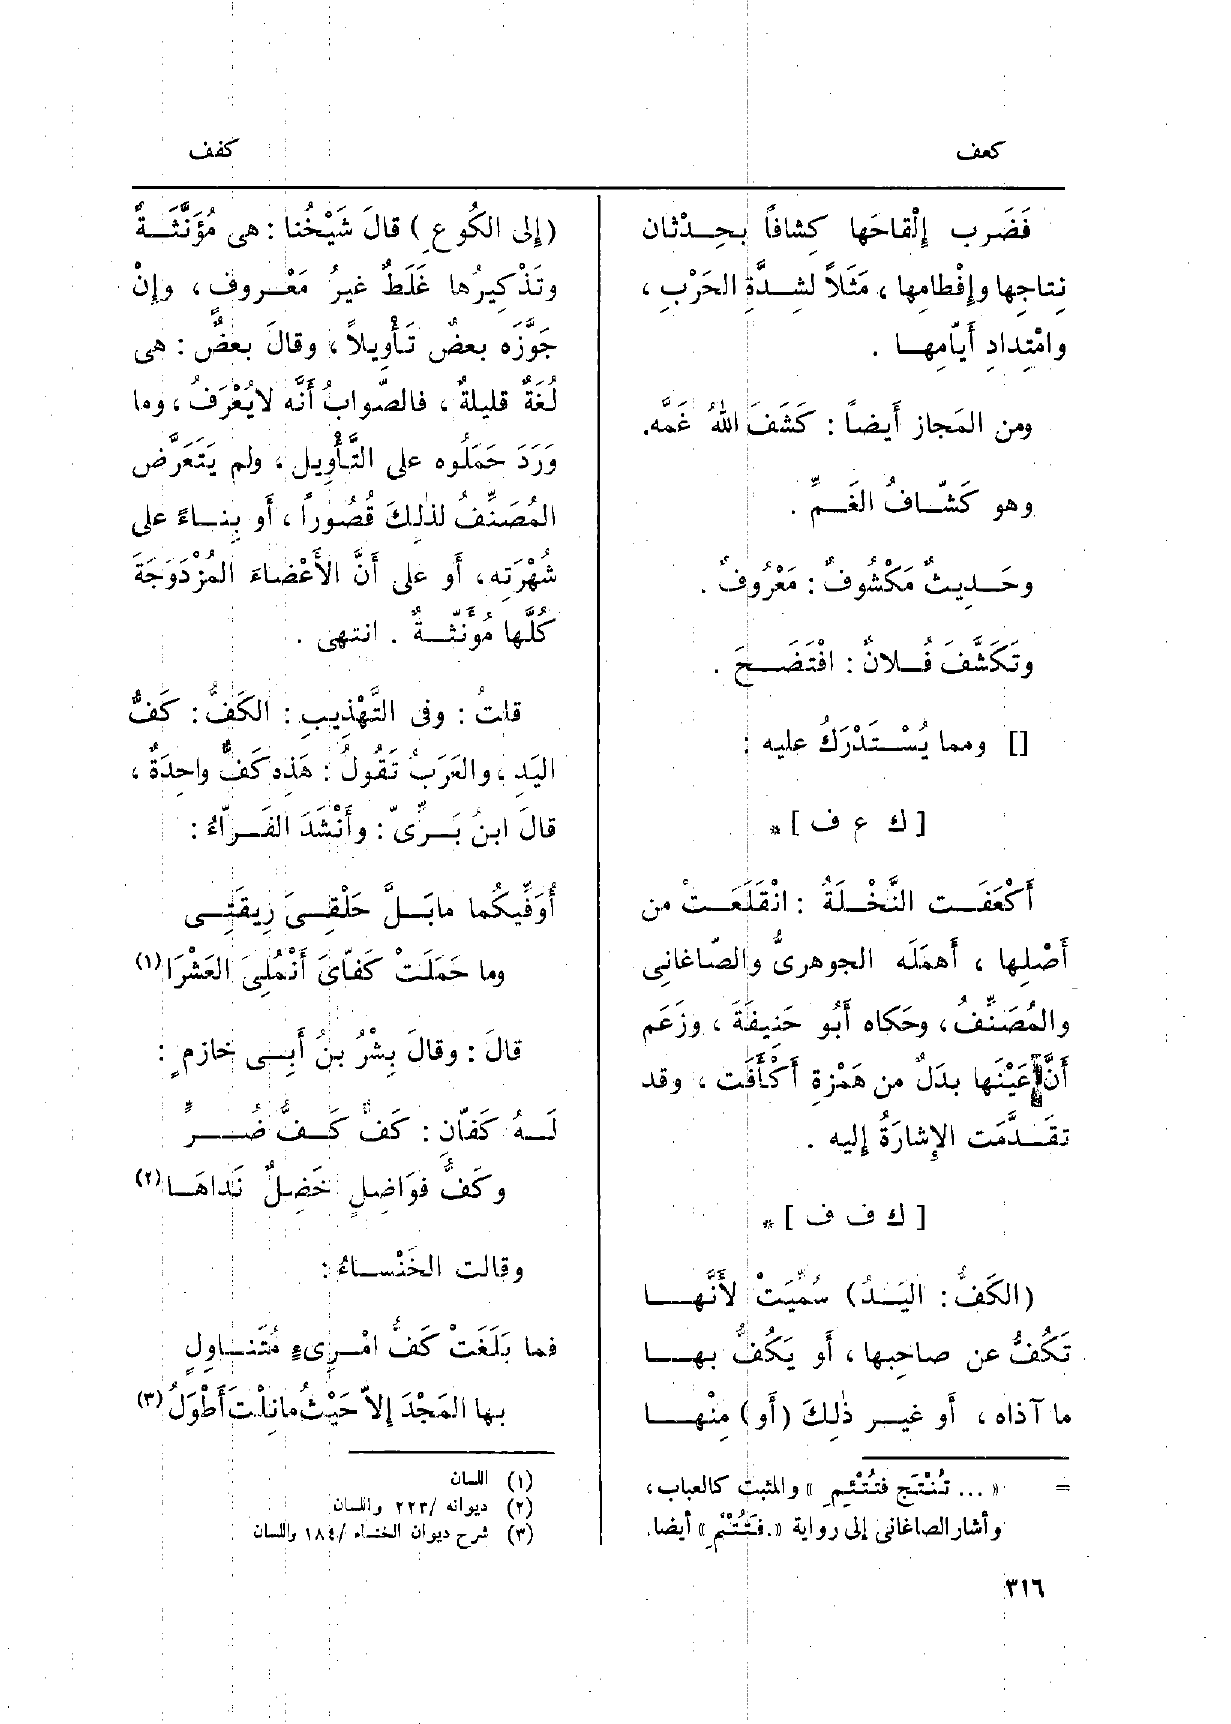 كعف
كفف
فَضَرب إِلْقاحَها كِشافاً بحِـدْثان
نِتاجِها وإِفْطامِها ، مَثَلاً لشِـدَّةِ الحَرْبِ ،
وامْتِدادِ أَيّامِهـا .
ومن المَجاز أَيضاً : كَشَفَ اللهُ غَمَّه.
وهو كَشّـافُ الغَـمِّ .
وحَـدِيثٌ مَكْشُوفٌ : مَعْرُوفٌ .
وتَكَشَّفَ فُـلانٌ : افْتَضَـحَ .
[] ومما يُسْـتَدْرَكُ عليه :
[ ك ع ف ] *
أَكْعَفَـت النَّخْـلَةُ : انْقَلَعَـتْ من
أَصْلِها ، أَهمَلَه الجوهرىُّ والصّاغانِى
والمُصَنِّفُ، وحَكاه أَبُو حَنِيفَةَ ، وزَعَم
أَنَّ عَيْنَها بدَلٌ من هَمْزةِ أَكْأَفَت ، وقد
تقـدَّمَت الإِشارَةُ إِليه .
[ ك ف ف ] *
(الكَفُّ: اليَـدُ) سُمِّيَتْ لأَنَّهـا
تَكُفُّ عن صاحِبِها ، أَو يَكُفُّ بهـا
ما آذاه ، أَو غيـر ذٰلِكَ (أَو) مِنْهـا
= « ... تُنْتَج فتُتْئِـمِ » والمثبت كالعباب ،
وأشار الصاغانى إلى رواية «.فتَتُتْمِ » أيضا.
(إِلى الكُوعِ ) قالَ شَيْخُنا : هى مُؤَنَّثَـةٌ
وتَذْكِيرُها غَلَطٌ غيرُ مَعْـروفٍ ، وإِنْ
جَوَّزَه بعضٌ تَأْوِيلاً ، وقالَ بعضٌ : هى
لُغَةٌ قليلةٌ ، فالصّوابُ أَنَّه لايُعْرَفُ ، وما
وَرَدَ حَمَلُوه على التَّأْوِيلِ ، ولم يَتَعَرَّض
المُصَنِّفُ لذٰلِكَ قُصُوراً ، أَو بِنـاءً على
شُهْرَتِه، أَو على أَنَّ الأَعْضاءَ المُزْدَوجَةَ
كُلَّها مُؤَنّثـةٌ . انتهى .
قلتُ : وفى التَّهْذِيبِ : الكَفُّ : كَفُّ
اليَدِ ، والعَرَبُ تَقُولُ : هَذِه كَفٌّ واحِدَةٌ ،
قالَ ابنُ بَـرِّىّ : وأَنْشَدَ الفَـرّاءُ :
أُوَفِّيكُما مابَـلَّ حَلْقِـىَ رِيقَتِـى
وما حَمَلَتْ كَفّاىَ أَنْمُلِىَ العَشْرَا (١)
قالَ : وقالَ بِشْرُ بنُ أَبِـى خازم ٍ :
لَـهُ كَفّان : كَفٌّ كَـفُّ ضُـرٍّ
وكَفُّ فَوَاضِلٍ خَضِلٌ نَداهَـا (٢)
وقالت الخَنْسـاءُ :
فما بَلَغَتْ كَفُّ امْـرِىءٍ مُتَنـاوِلٍ
بها المَجْدَ إِلاّ حَيْثُ مانِلْتَ أَطْوَلُ (٣)
(١) اللسان
(٢) ديوانه /٢٢٣ واللسان
(٣) شرح ديوان الخنساء /١٨٤ واللسان
٣١٦